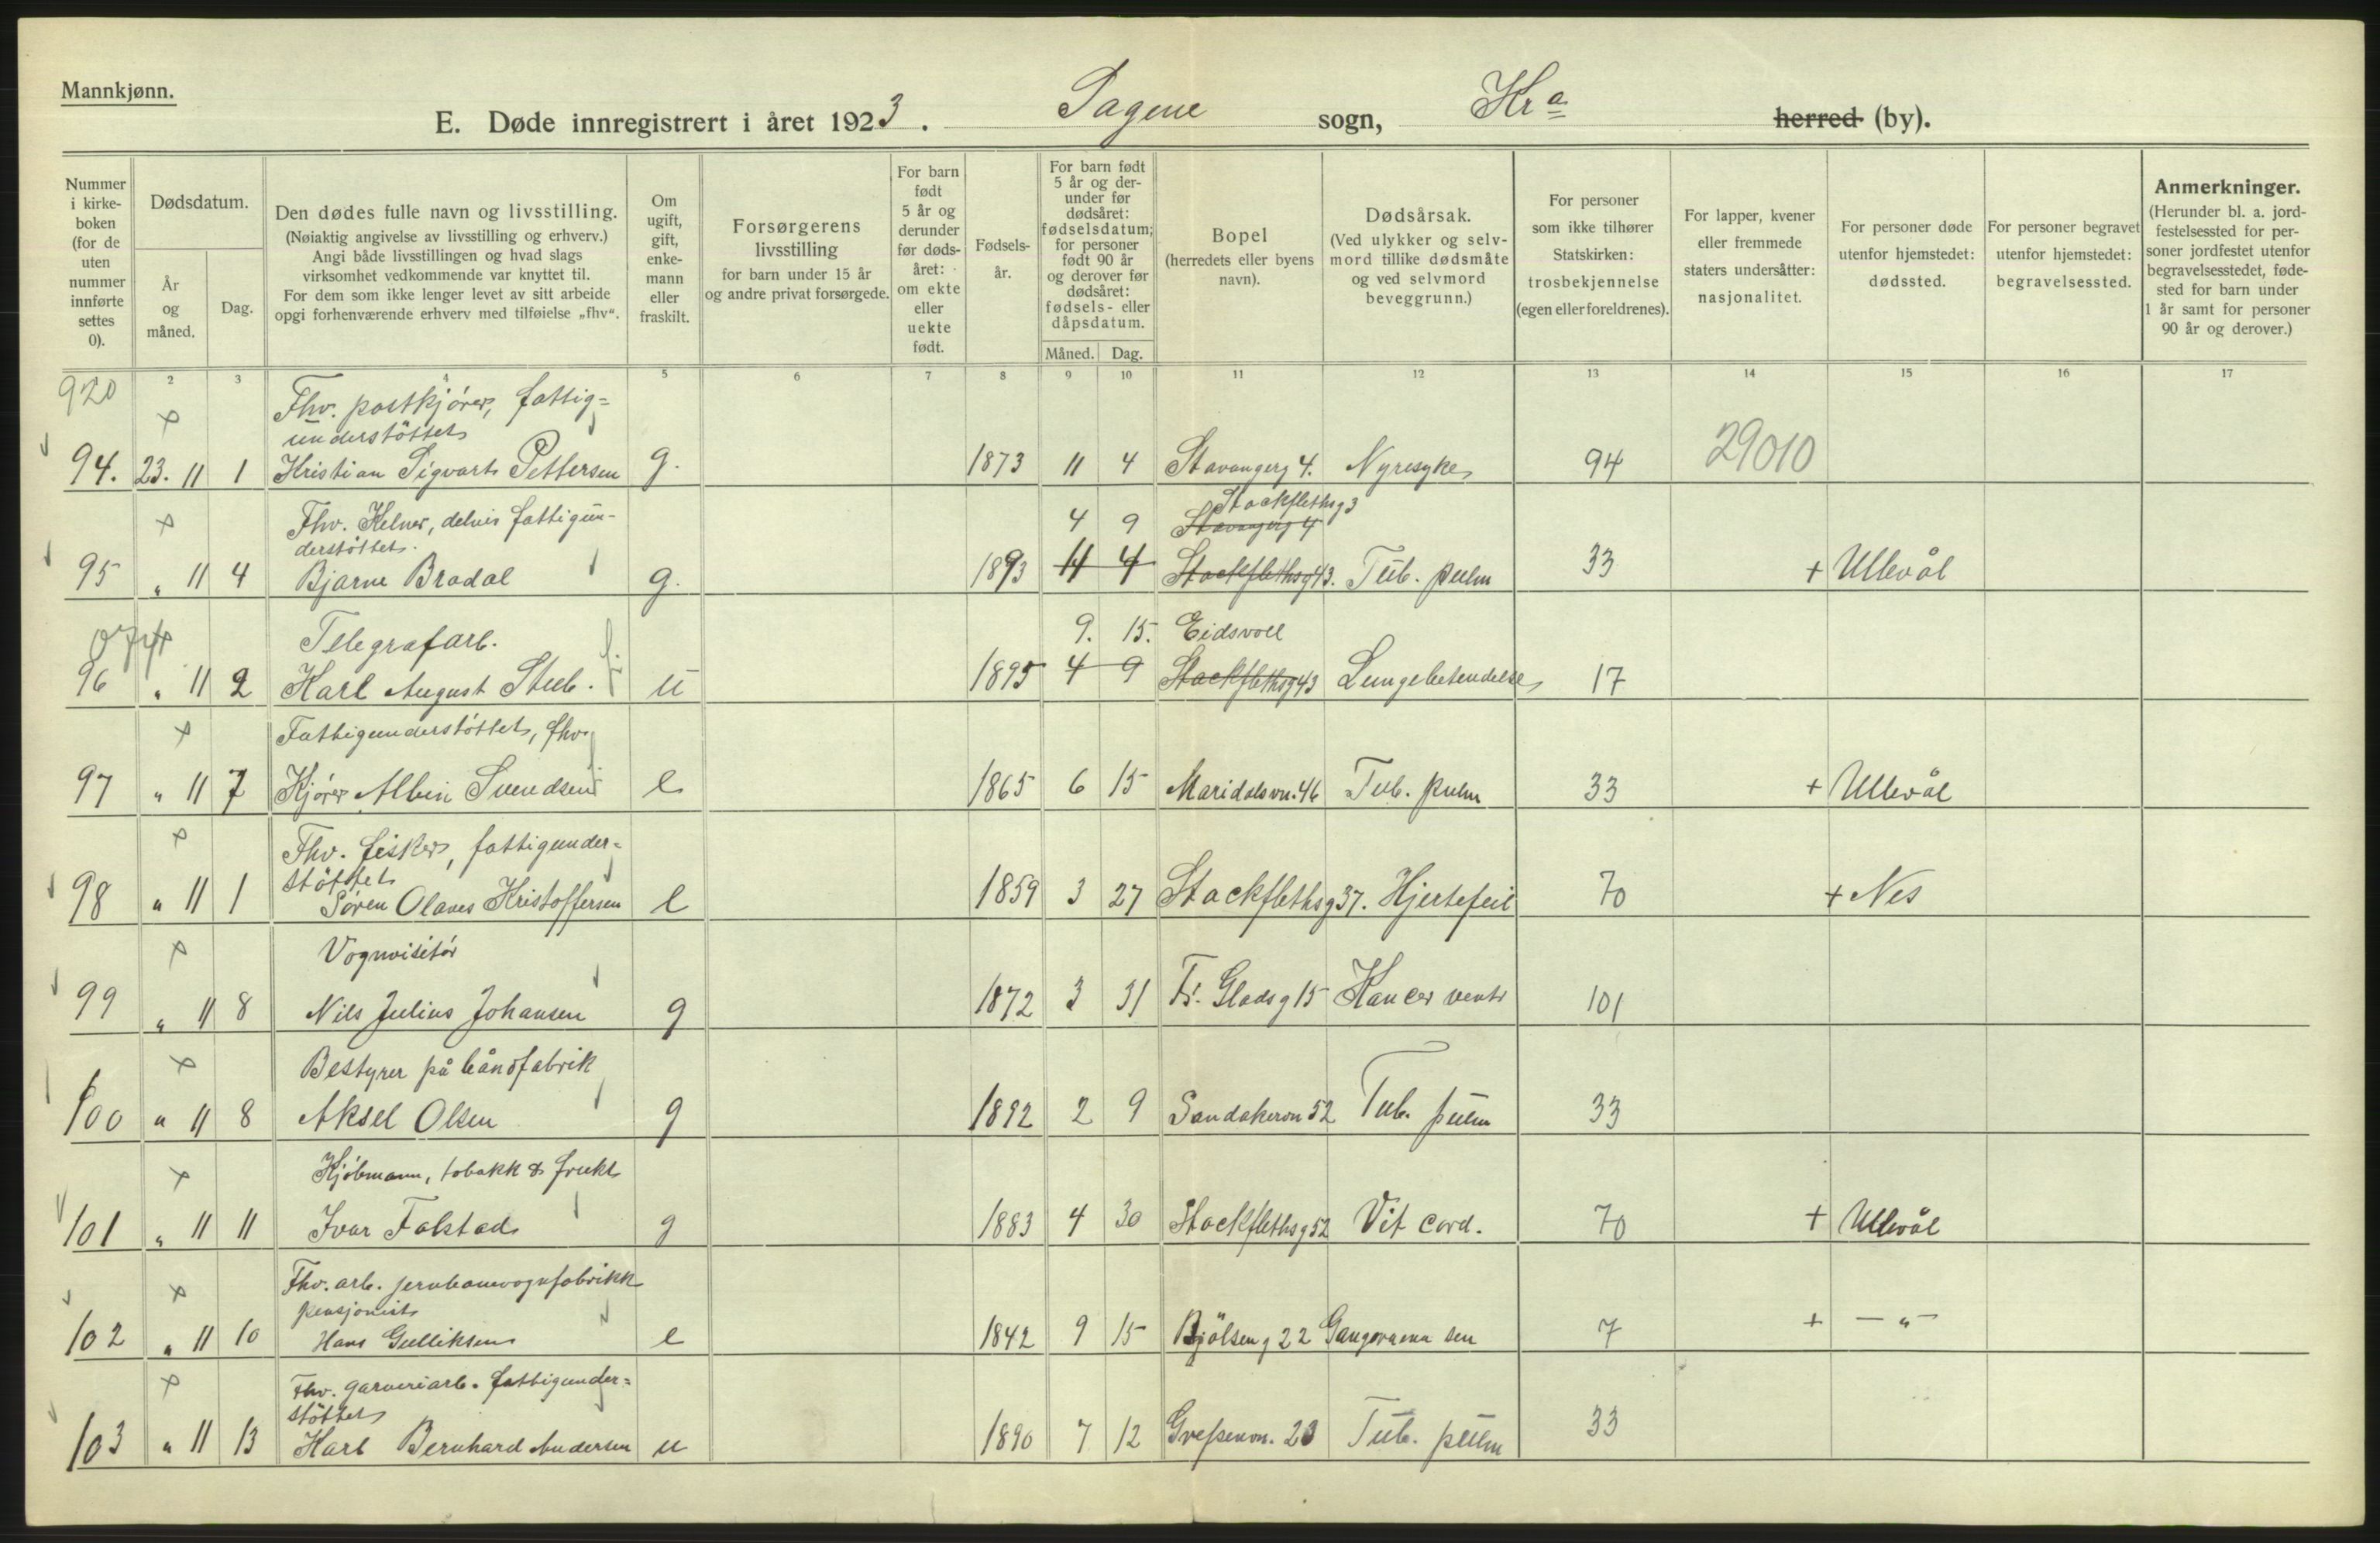 Mannkjønn.
E. Døde innregistrert i året 1923. Sagene sogn, Kra herred (by).
Nummer i kirkeboken (for de uten nummer innførte settes 0).
Dødsdatum.
År og måned.
Dag.
Den dødes fulle navn og livsstilling.
(Nøiaktig angivelse av livsstilling og erhverv.)
Angi både livsstillingen og hvad slags
virksomhet vedkommende var knyttet til.
For dem som ikke lenger levet av sitt arbeide
opgi forhenværende erhverv med tilføielse „fhv“.
Om ugift, gift, enkemann eller fraskilt.
Forsørgerens livsstilling
for barn under 15 år
og andre privat forsørgede.
For barn født 5 år og derunder før dødsåret: om ekte eller uekte født.
Fødselsår.
For barn født 5 år og derunder før dødsåret: fødselsdatum; for personer født 90 år og derover før dødsåret: fødsels- eller dåpsdatum.
Måned. Dag.
Bopel
(herredets eller byens navn).
Dødsårsak.
(Ved ulykker og selvmord tillike dødsmåte og ved selvmord beveggrunn.)
For personer som ikke tilhører Statskirken: trosbekjennelse (egen eller foreldrenes).
For lapper, kvener eller fremmede staters undersåtter: nasjonalitet.
For personer døde utenfor hjemstedet: dødssted.
For personer begravet utenfor hjemstedet: begravelsessted.
Anmerkninger.
(Herunder bl. a. jordfestelsessted for personer jordfestet utenfor begravelsesstedet, fødested for barn under 1 år samt for personer 90 år og derover.)
2 3 4 5 6 7 8 9 10 11 12 13 14 15 16 17
920
Fhv. postkjører, fattig=
understöttet
94. 23. 11 1 Kristian Sigvart Pettersen g. 1873 11 4 Stavangerg 4. Nyresyke 94 29010
Fhv. Kelner, delvis fattigun-
derstöttet. 4 9 Stavangerg 4 Stockflethsg 3
95 „ 11 4 Bjarne Bradal g. 1893 11 4 Stockflethsg 43. Tub. pulm 33 + Ullevål
Telegrafarb. 9. 15. Eidsvoll
96 „ 11 2 Karl August Stub. u 1895 4 9 Stockflethsg 43 Lungebetendelse 17
Fattigunderstöttet, fhv.
97 „ 11 7 Kjører Albin Svendsen e 1865 6 15 Maridalsvn. 46 Tub. pulm 33 + Ullevål
Fhv. fisker, fattigunder=
stöttet
98 „ 11 1 Søren Olaves Kristoffersen e 1859 3 27 Stockflethsg 37. Hjertefeil 70 + Nes
Vognvisitör
99 „ 11 8 Nils Julius Johansen g 1872 3 31 Fr. Gladsg 15 Kancer ventr 101
Bestyrer på båndfabrik
100 „ 11 8 Aksel Olsen g 1892 2 9 Sandakervn 52 Tub. pulm 33
Kjøbmann, tobakk & frukt
101 „ 11 11 Ivar Falstad g 1883 4 30 Stockflethsg 52 Vit cord. 70 + Ullevål
Fhv. arb. jernbanevognfabrikk
pensjonist
102 „ 11 10 Hans Gulliksen e 1842 9 15 Bjölseng 22 Gangraena sen 7 + — „ —
Fhv. garveriarb. fattigunder=
stöttet
103 „ 11 13 Karl Bernhard Andersen u 1890 7 12 Grefsenvn. 23 Tub. pulm 33